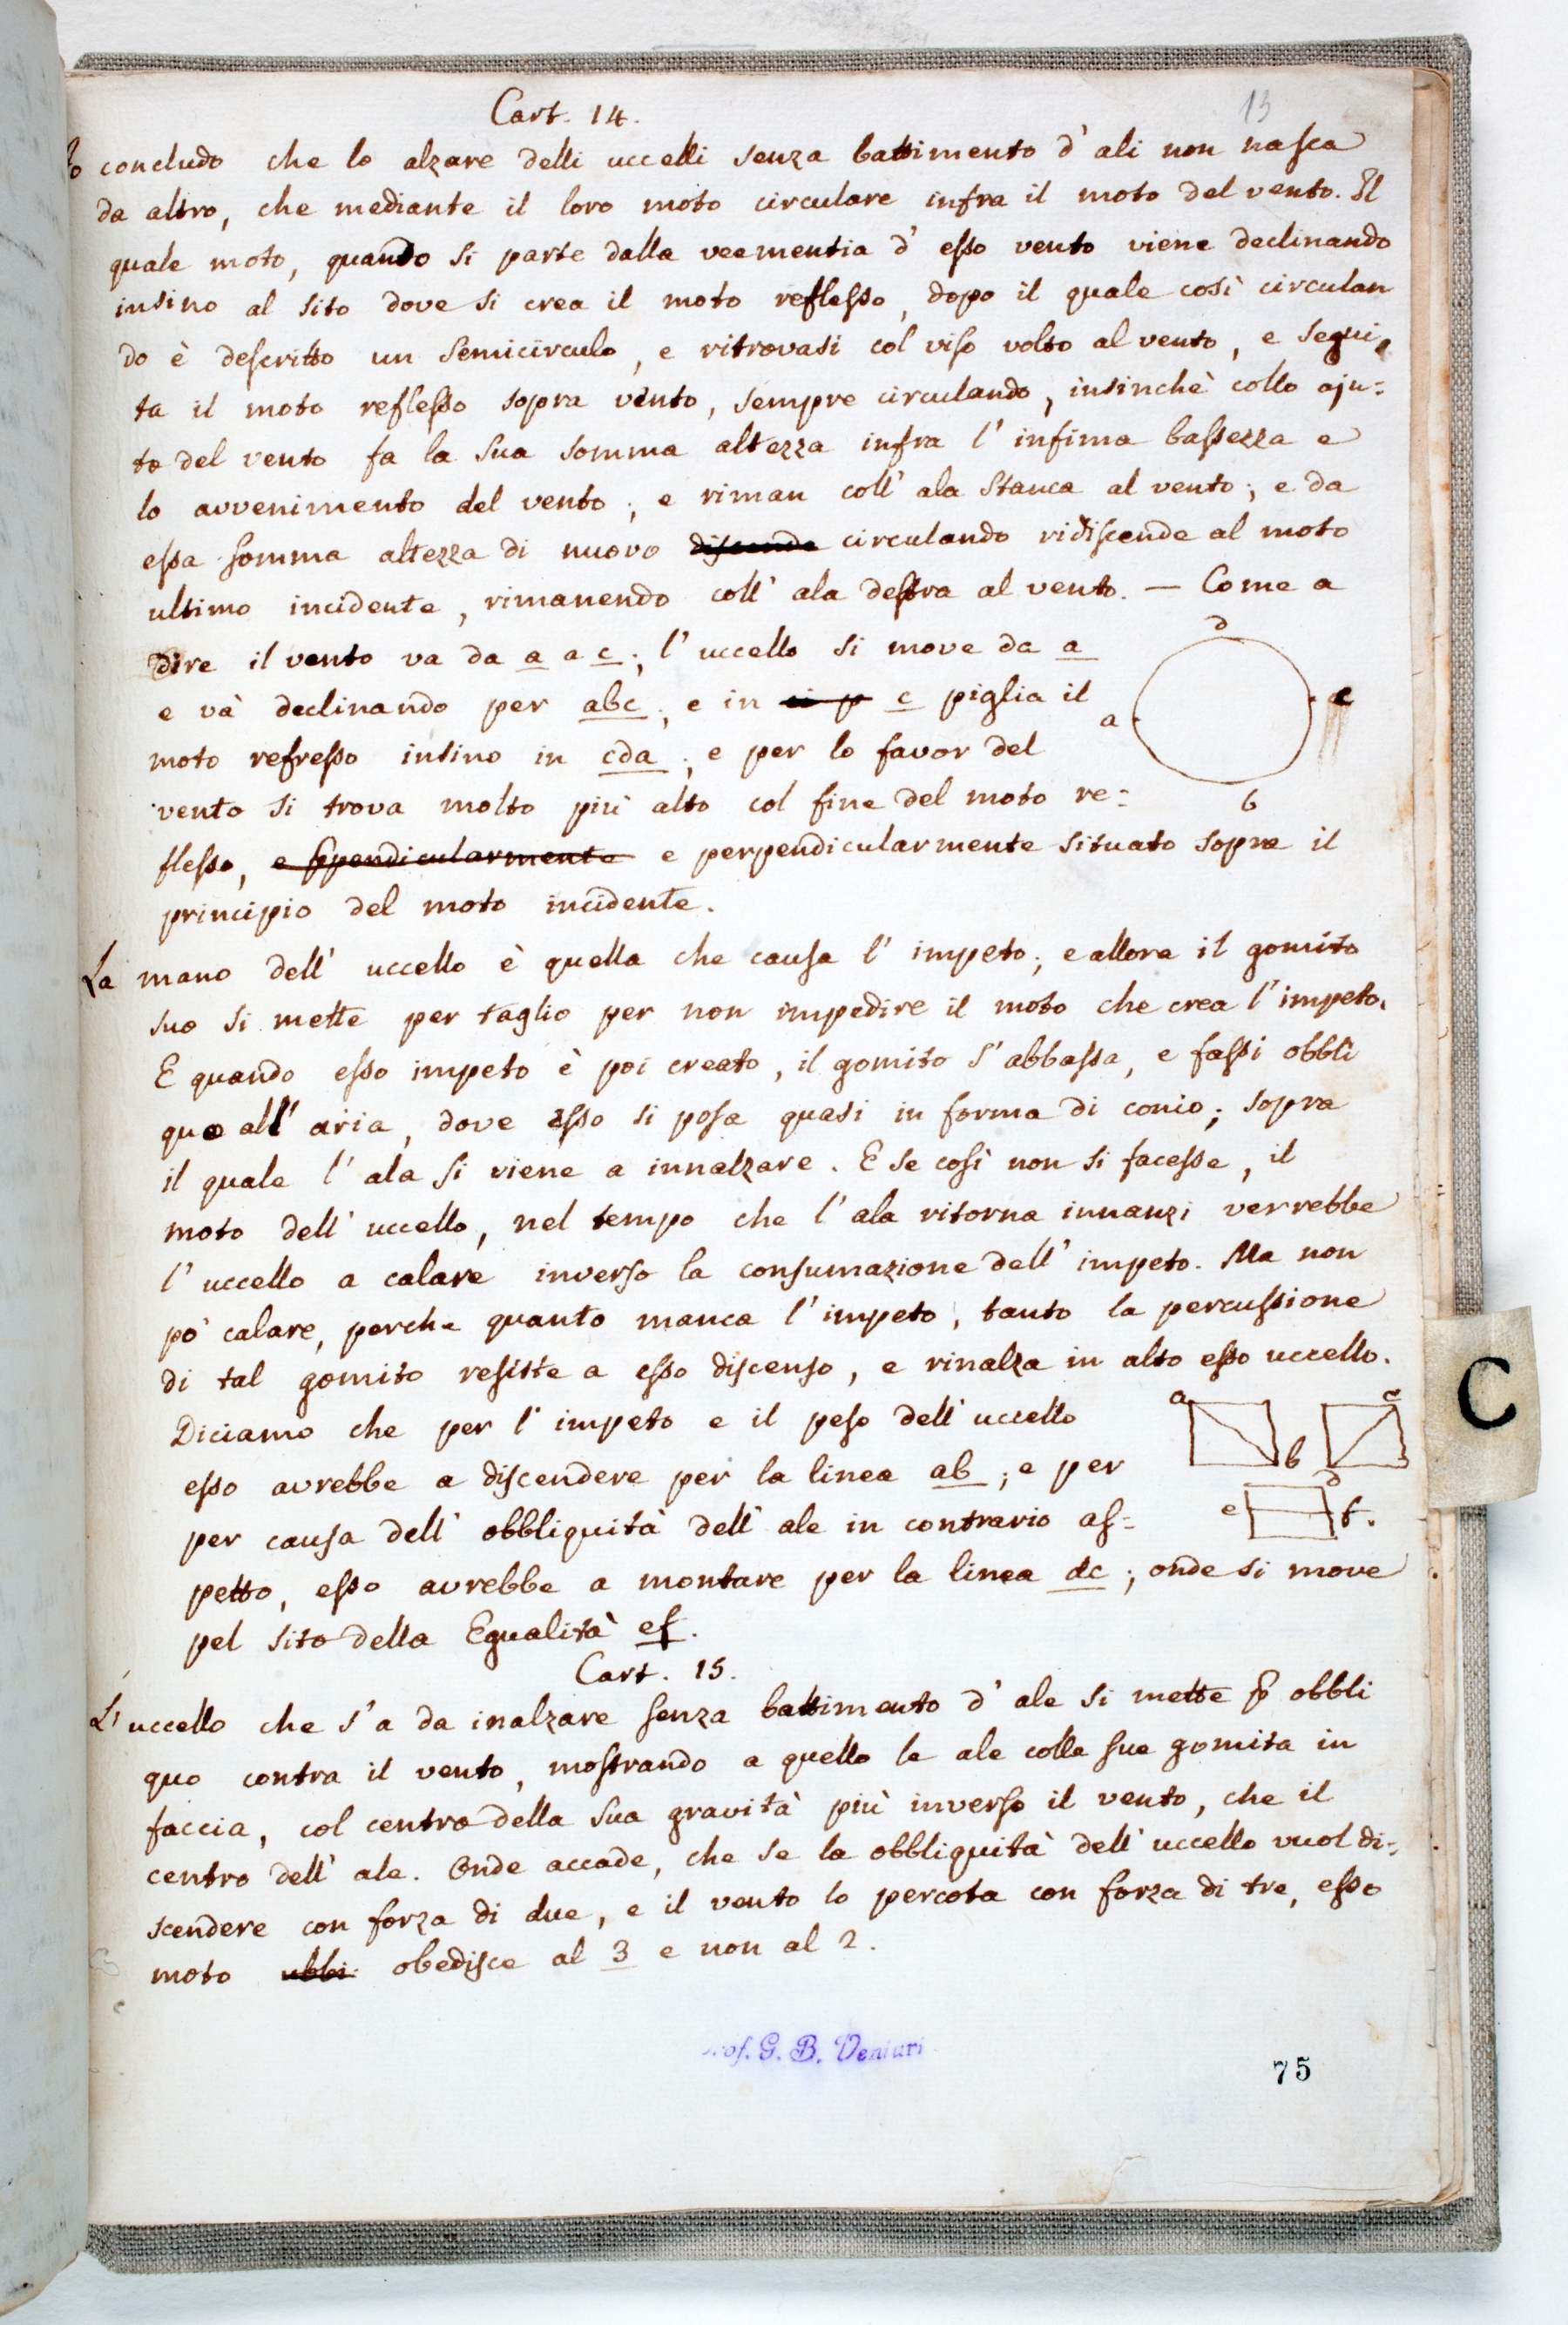 Cart. 14.
13
Io concludo che lo alzare delli uccelli senza battimento d'ali non nasca
da altro, che mediante il loro moto circulare infra il moto del vento. Il
quale moto, quando si parte dalla veementia d'esso vento viene declinando
insino al sito dove si crea il moto reflesso, dopo il quale così circulan
do è descritto un semicirculo, e ritrovasi col viso volto al vento, e segui
ta il moto reflesso sopra vento, sempre circulando, insinchè collo aju=
to del vento fa la sua somma altezza infra l'infima bassezza e
lo avvenimento del vento; e riman coll'ala stanca al vento; e da
essa somma altezza di nuovo discende circulando ridiscende al moto
ultimo incidente, rimanendo coll'ala destra al vento. — Come a
dire il vento va da a a c; l'uccello si move da a
e và declinando per abc; e in ci p c piglia il
moto refresso insino in cda; e per lo favor del
vento si trova molto più alto col fine del moto re=
flesso, e ppendicularmente e perpendicularmente situato sopra il
principio del moto incidente.
d
a
c
b
La mano dell'uccello è quella che causa l'impeto; e allora il gomito
suo si mette per taglio per non impedire il moto che crea l'impeto.
E quando esso impeto è poi creato, il gomito s'abbassa, e fassi obbli
quo all'aria, dove esso si posa quasi in forma di conio; sopra
il quale l'ala si viene a innalzare. E se così non si facesse, il
moto dell'uccello, nel tempo che l'ala ritorna innanzi verrebbe
l'uccello a calare inverso la consumazione dell'impeto. Ma non
po' calare, perche quanto manca l'impeto, tanto la percussione
di tal gomito resiste a esso discenso, e rinalza in alto esso uccello.
Diciamo che per l'impeto e il peso dell'uccello
esso avrebbe a discendere per la linea ab; e per
per causa dell'obbliquità dell'ale in contrario as=
petto, esso avrebbe a montare per la linea dc; onde si move
pel sito della Egualità ef.
a
b
c
d
e
f.
Cart. 15.
L'uccello che s'a da inalzare senza battimento d'ale si mette p obbli
quo contra il vento, mostrando a quello le ale colle sue gomita in
faccia, col centro della sua gravità più inverso il vento, che il
centro dell'ale. Onde accade, che se la obbliquità dell'uccello vuol di=
scendere con forza di due, e il vento lo percota con forza di tre, esso
moto ubbi obedisce al 3 e non al 2.
Prof. G. B. Venturi
75
C